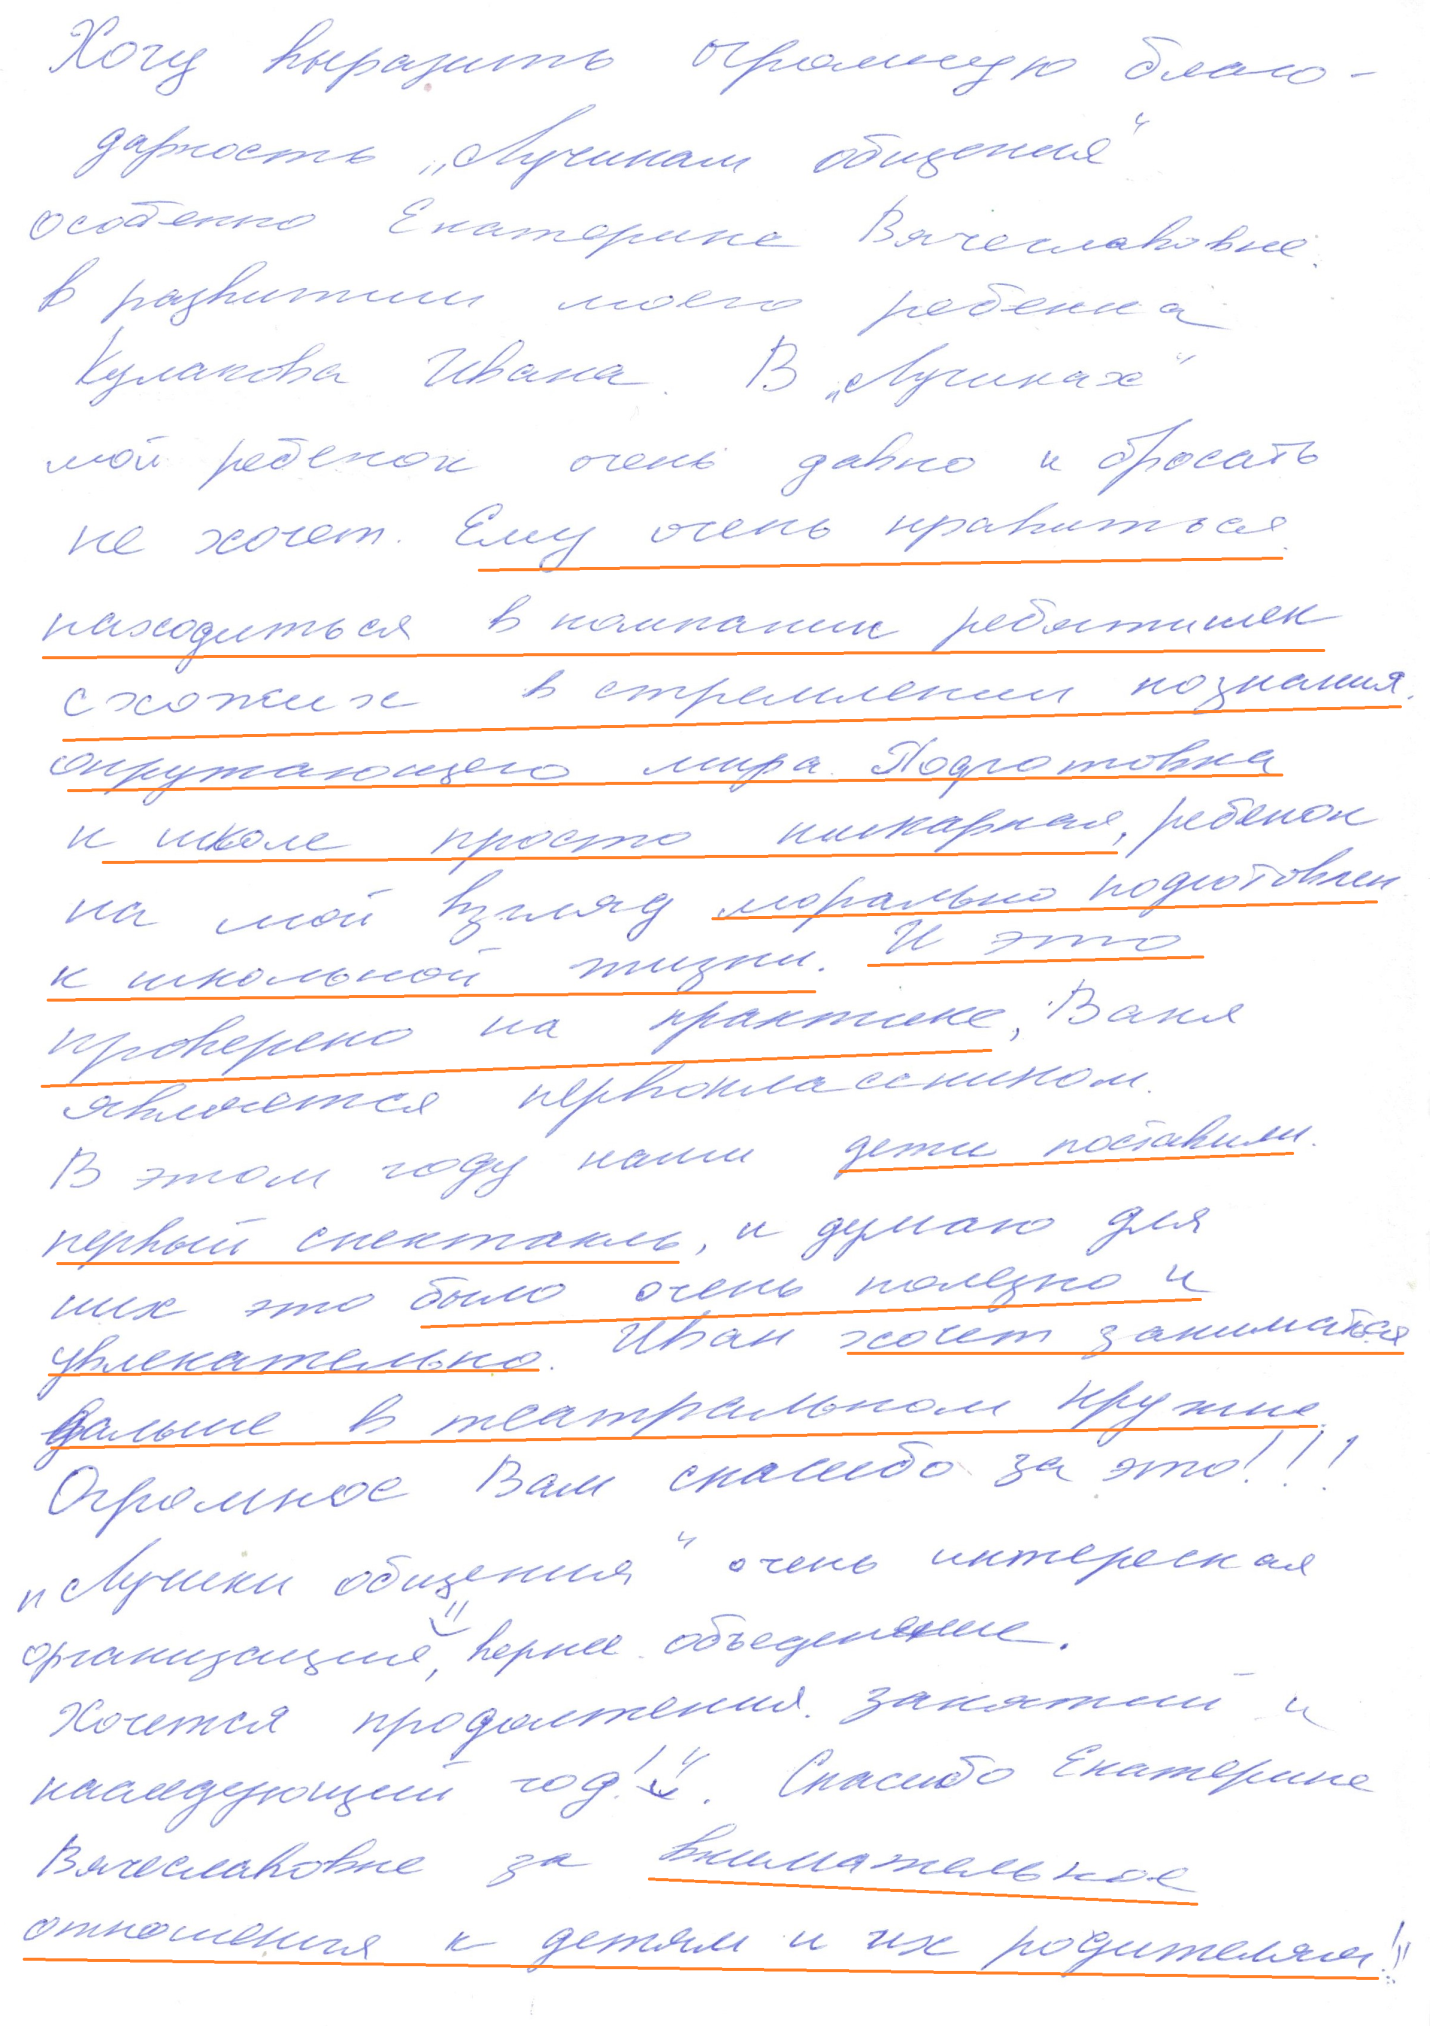 Хочу выразить огромную благо-
дарность „Лучикам общения“
особенно Екатерине Вячеславовне.
в развитии моего ребенка
Кулакова Ивана. В „Лучиках“
мой ребенок очень давно и бросать
не хочет. Ему очень нравиться
находиться в компании ребятишек
схожих в стремлении познания
окружающего мира. Подготовка
к школе просто шикарная, ребенок
на мой взгляд морально подготовлен
к школьной жизни. И это
проверено на практике, Ваня
является первоклассником.
В этом году наши дети поставили
первый спектакль, и думаю для
них это было очень полезно и
увлекательно. Иван хочет заниматься
дальше в театральном кружке.
Огромное Вам спасибо за это!!!
„Лучики общения“ очень интересная
организация, вернее объеденение.
Хочется продолжения занятий и
наследующий год! Спасибо Екатерине
Вячеславовне за внимательное
отношения к детям и их родителям!!